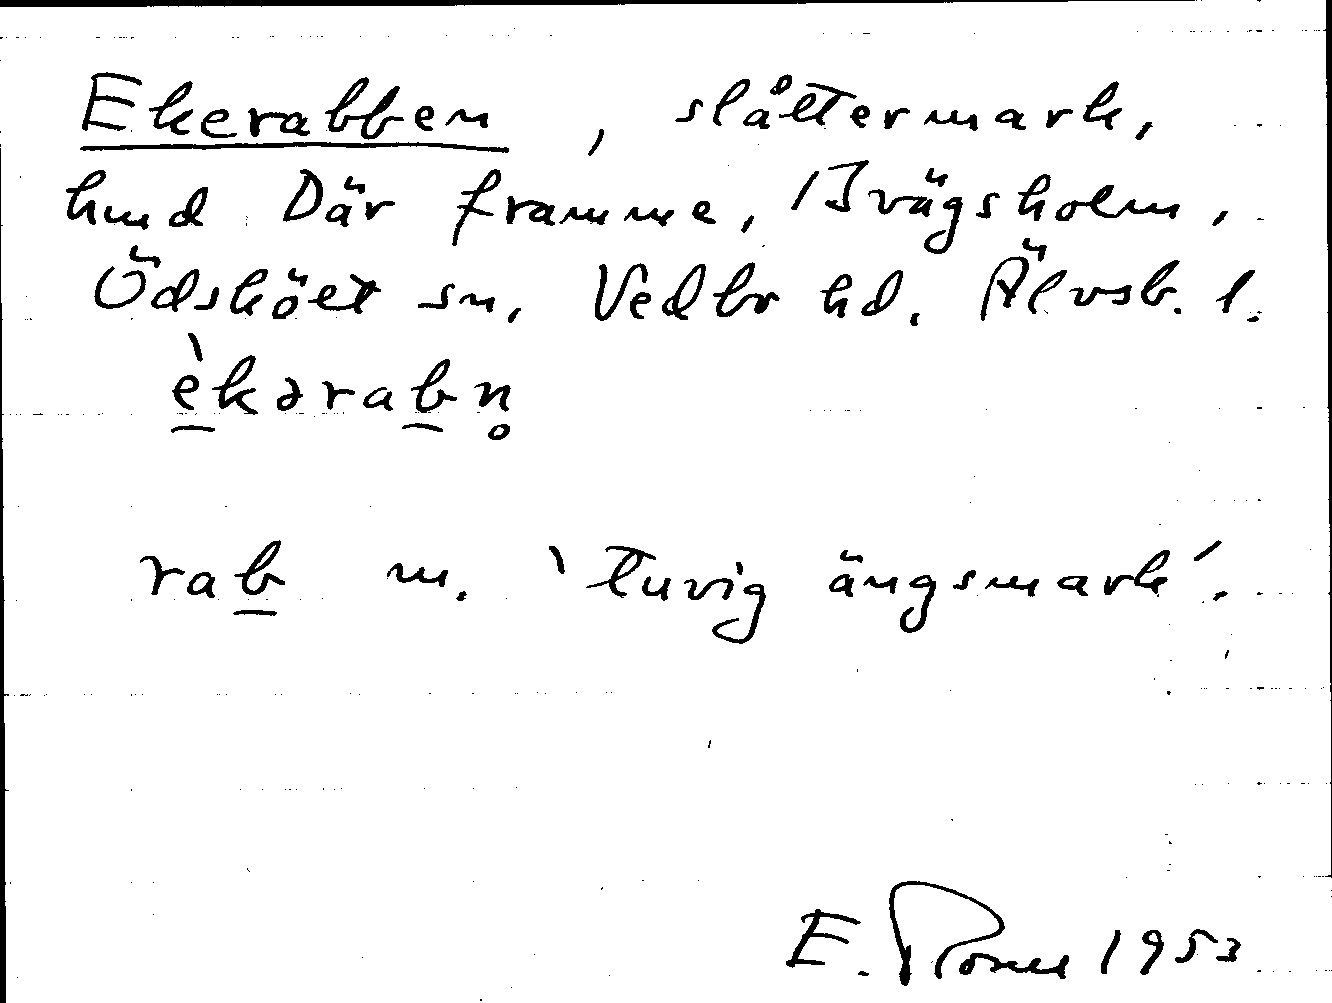 Ekerabben, slåttermark,
hmd Där framme, Bvägsholm,
Ödsköet sn, Vedbo hd. Älvsb. l.
èkərabn̥
rab m. 'tuvig ängsmark'.
E. 1953